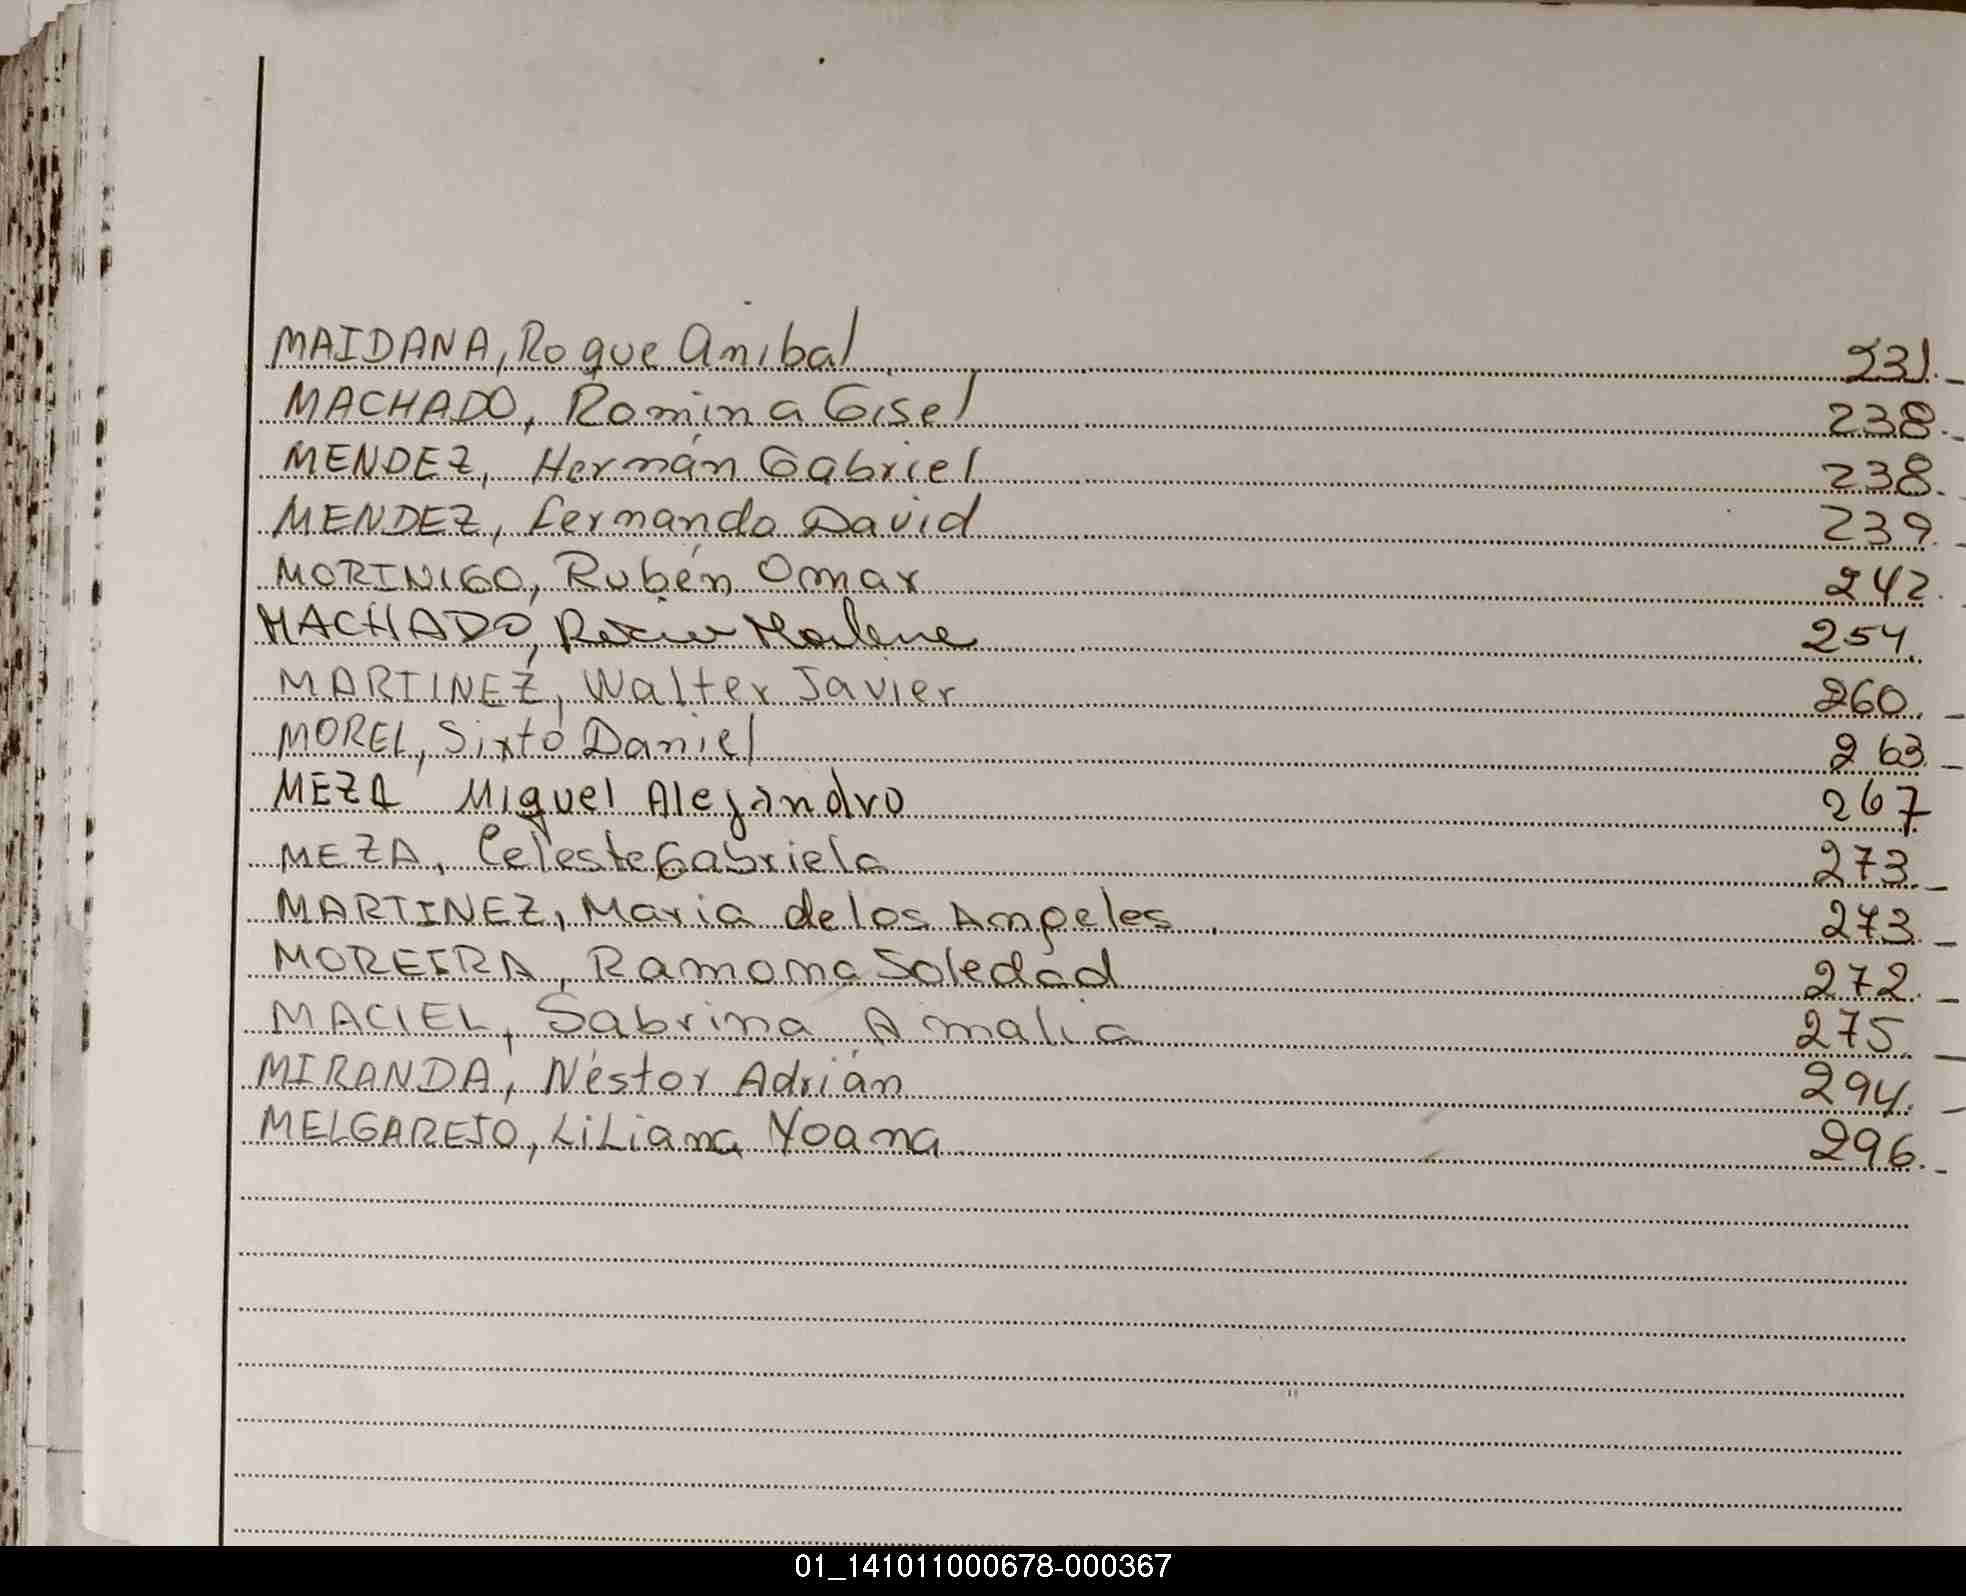 MAIDANA, Roque Anibal 231.-
MACHADO, Romina Gisel 238.-
MENDEZ, Hernán Gabriel 238.-
MENDEZ, Fernando David 239.-
MORINIGO, Rubén Omar 242.-
MACHADO, Rocio Marlene 254.
MARTINEZ, Walter Javier 260.-
MOREL, Sixto Daniel 263.-
MEZA Miguel Alejandro 267
MEZA, Celeste Gabriela 273.-
MARTINEZ, Maria de los Angeles 273.-
MOREIRA, Ramona Soledad 272.-
MACIEL, Sabrina Amalia 275.-
MIRANDA, Néstor Adrián 294.-
MELGAREJO, LiLiana Yoana 296.-
01_141011000678-000367